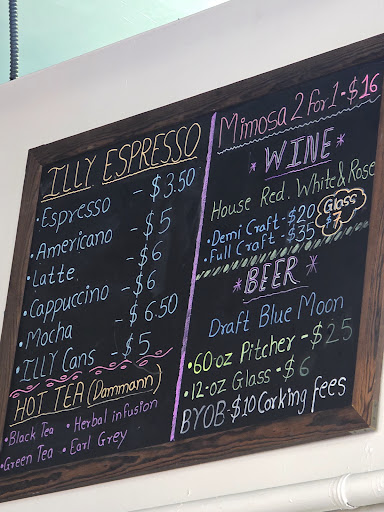 ILLY ESPRESSO
• Espresso - $3.50
• Americano - $5
• Latte - $6
• Cappuccino - $6
• Mocha - $6.50
• ILLY Cans - $5
HOT TEA (Dammann)
• Black Tea • Herbal infusion
• Green Tea • Earl Grey
Mimosa 2 for 1 - $16
* WINE *
House Red. White & Rose
• Demi Craft - $20
• Full Craft - $35
Glass $7
* BEER *
Draft Blue Moon
• 60-oz Pitcher - $25
• 12-oz Glass - $6
BYOB - $10 Corking fees